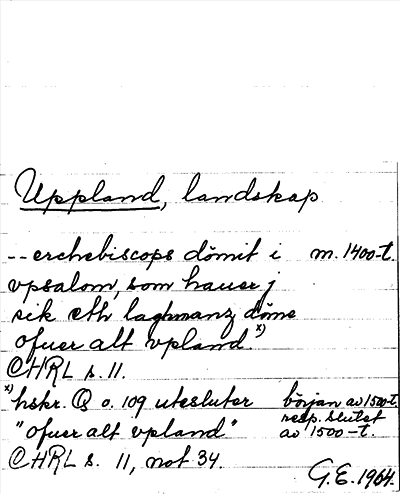 Uppland, landskap
-- erchebiscops dömit i m. 1400-t.
vpsalom, som hauer j
sik eth laghmanz döme
ofuer alt vpland x)
CHRL s. 11.
x) hskr. Q o. 109 utesluter början av 1500-t.
"ofuer alt vpland" resp. slutet
av 1500-t.
CHRL s. 11, not 34.
G.E. 1964.